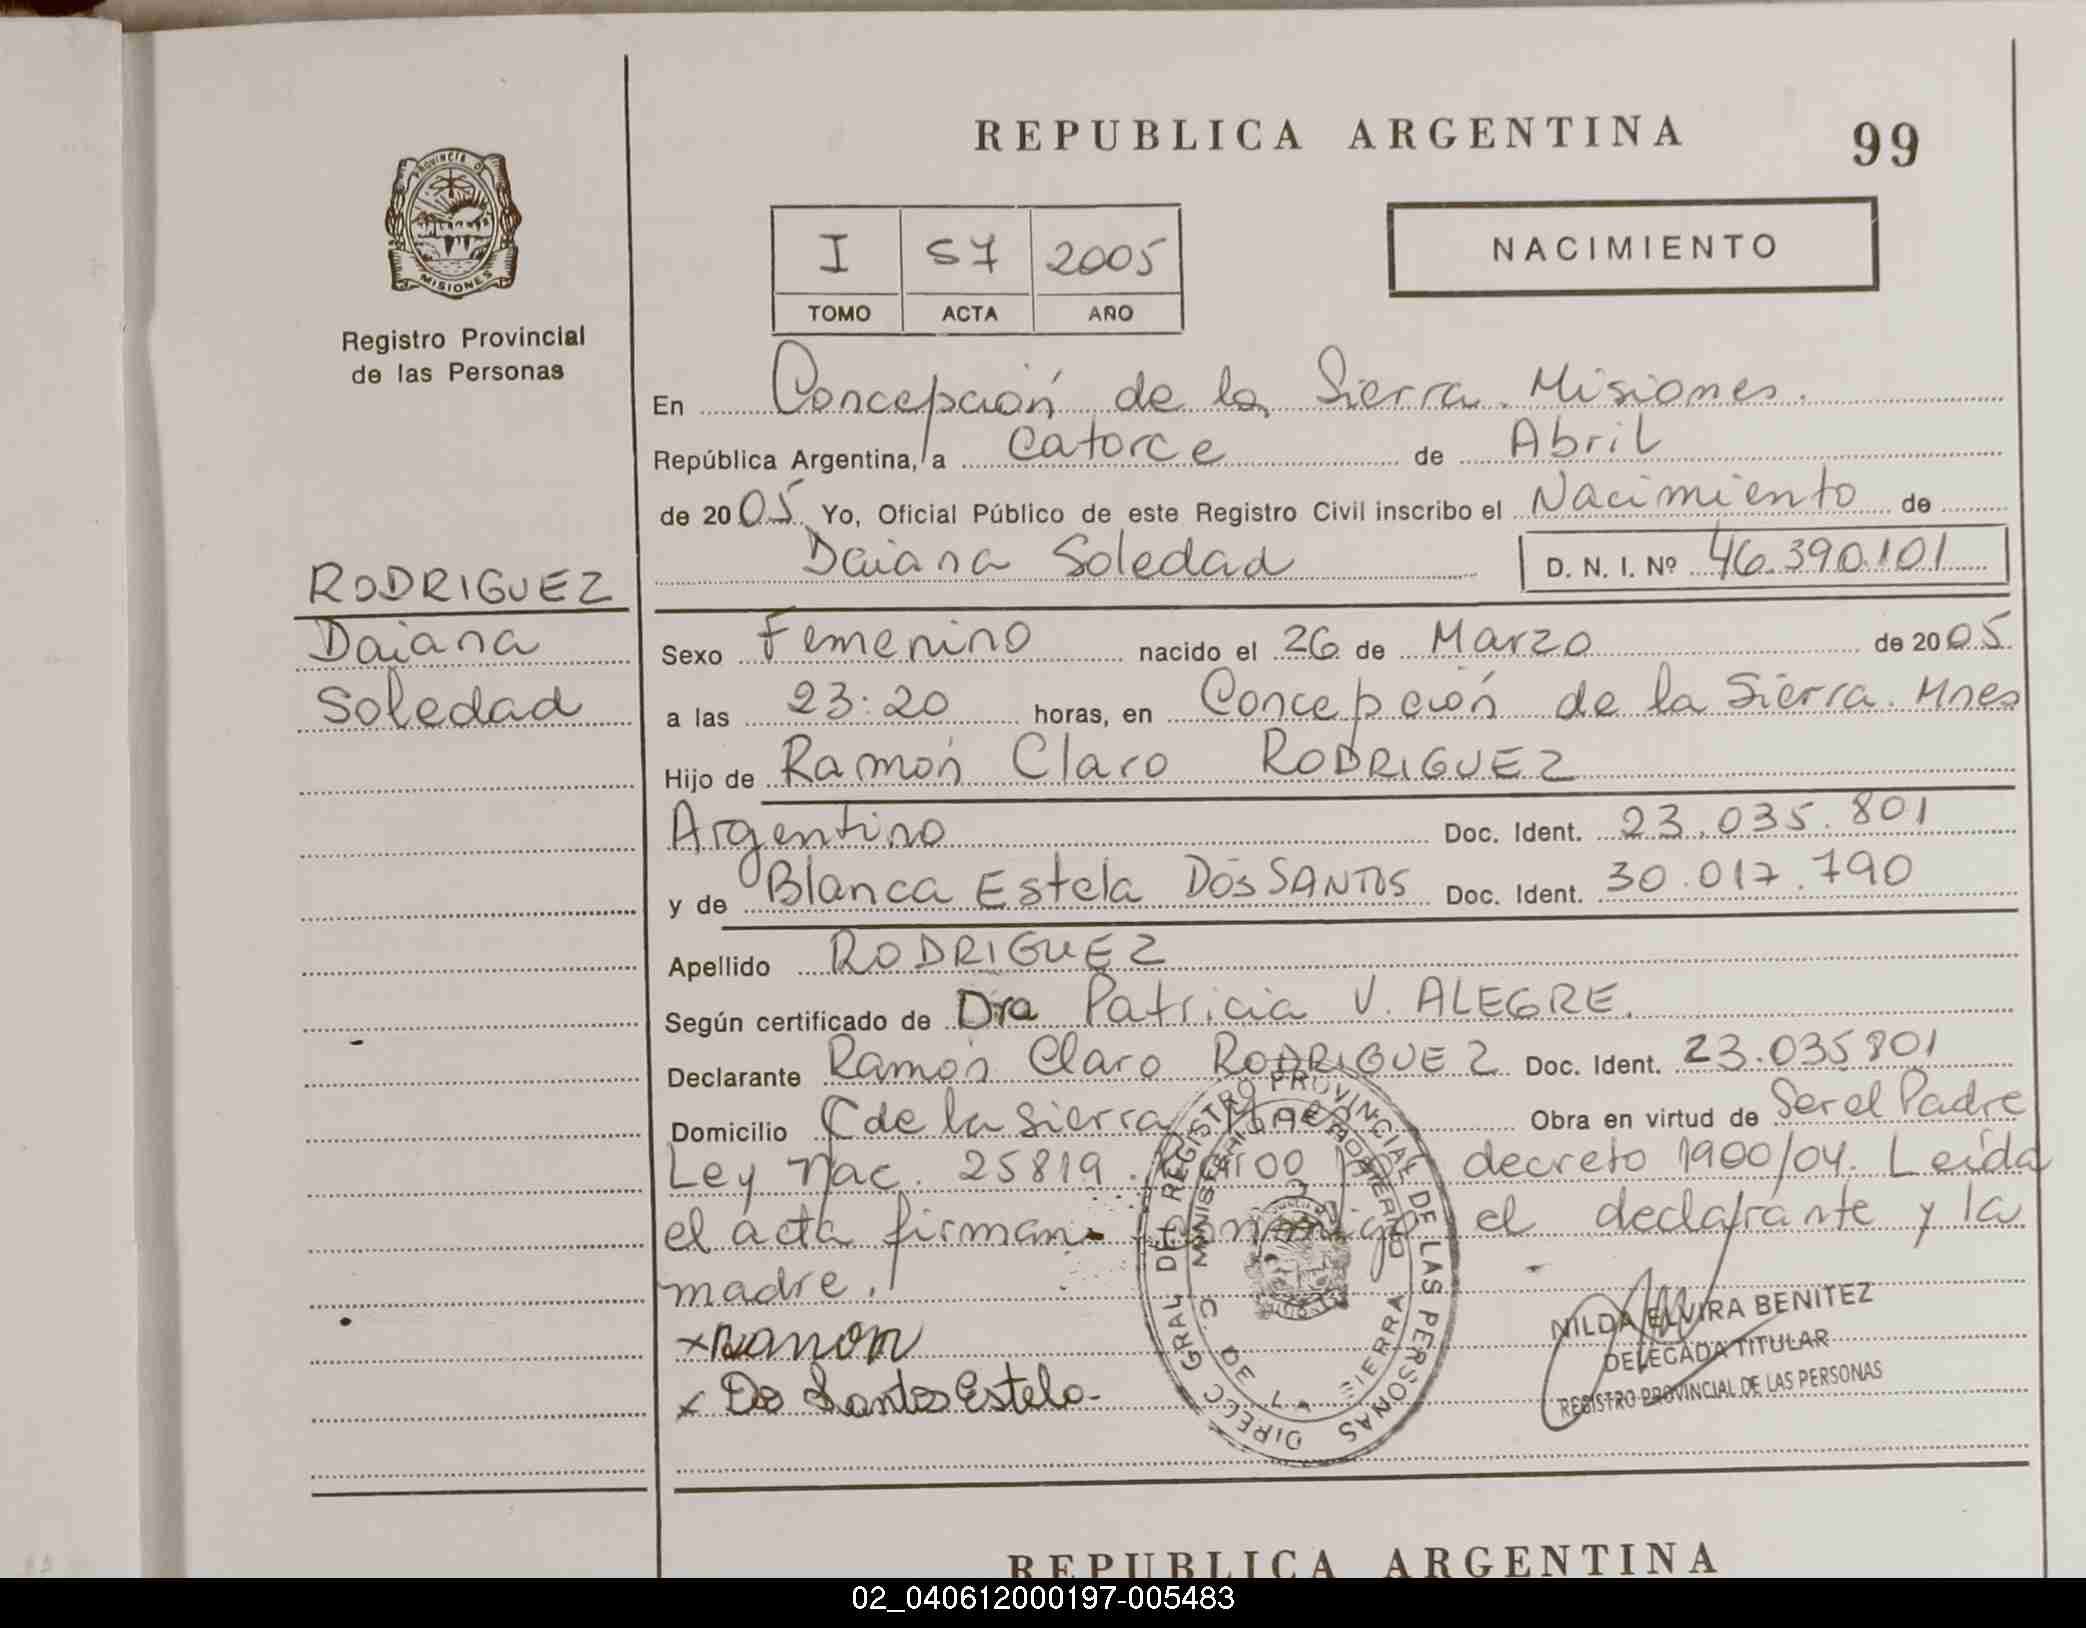 REPUBLICA ARGENTINA
99
PROVINCIA DE
MISIONES
Registro Provincial
de las Personas
I 57 2005
TOMO ACTA AÑO
NACIMIENTO
En Concepción de la Sierra. Misiones.
República Argentina, a Catorce de Abril
de 2005 Yo, Oficial Público de este Registro Civil inscribo el Nacimiento de
Daiana Soledad D. N. I. Nº 46.390.101
RODRIGUEZ
Daiana
Soledad
Sexo Femenino nacido el 26 de Marzo de 2005
a las 23:20 horas, en Concepción de la Sierra. Mnes
Hijo de Ramón Claro RODRIGUEZ
Argentino Doc. Ident. 23.035.801
y de Blanca Estela DOS SANTOS Doc. Ident. 30.017.790
Apellido RODRIGUEZ
Según certificado de Dra Patricia V. ALEGRE.
Declarante Ramón Claro RODRIGUEZ Doc. Ident. 23.035801
Domicilio C de la Sierra Mnes Obra en virtud de Ser el Padre
Ley Nac. 25819. decreto 1900/04. Leída
el acta firman conmigo el declarante y la
madre.
x Ramon
x Dos Santos Estela
DIRECC GRAL DEL REGISTRO PROVINCIAL DE LAS PERSONAS
NILDA ELVIRA BENITEZ
DELEGADA TITULAR
REGISTRO PROVINCIAL DE LAS PERSONAS
REPUBLICA ARGENTINA
02_040612000197-005483